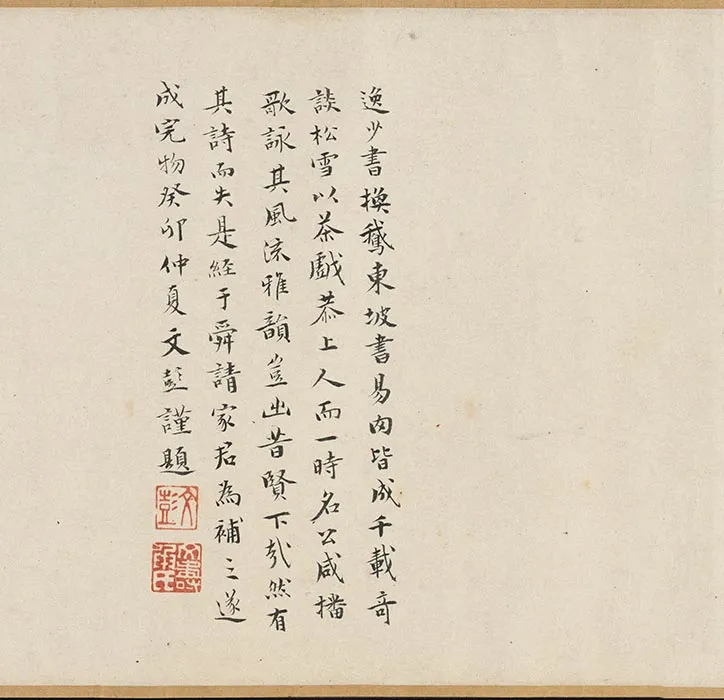 逸少書換鵞東坡書易肉皆成千載奇
談松雪以茶戲恭上人而一時名公咸播
歌詠其風流雅韻豈出昔賢下哉然有
其詩而失是經于舜請家君為補之遂
成完物癸卯仲夏文彭謹題
文彭
文壽承氏